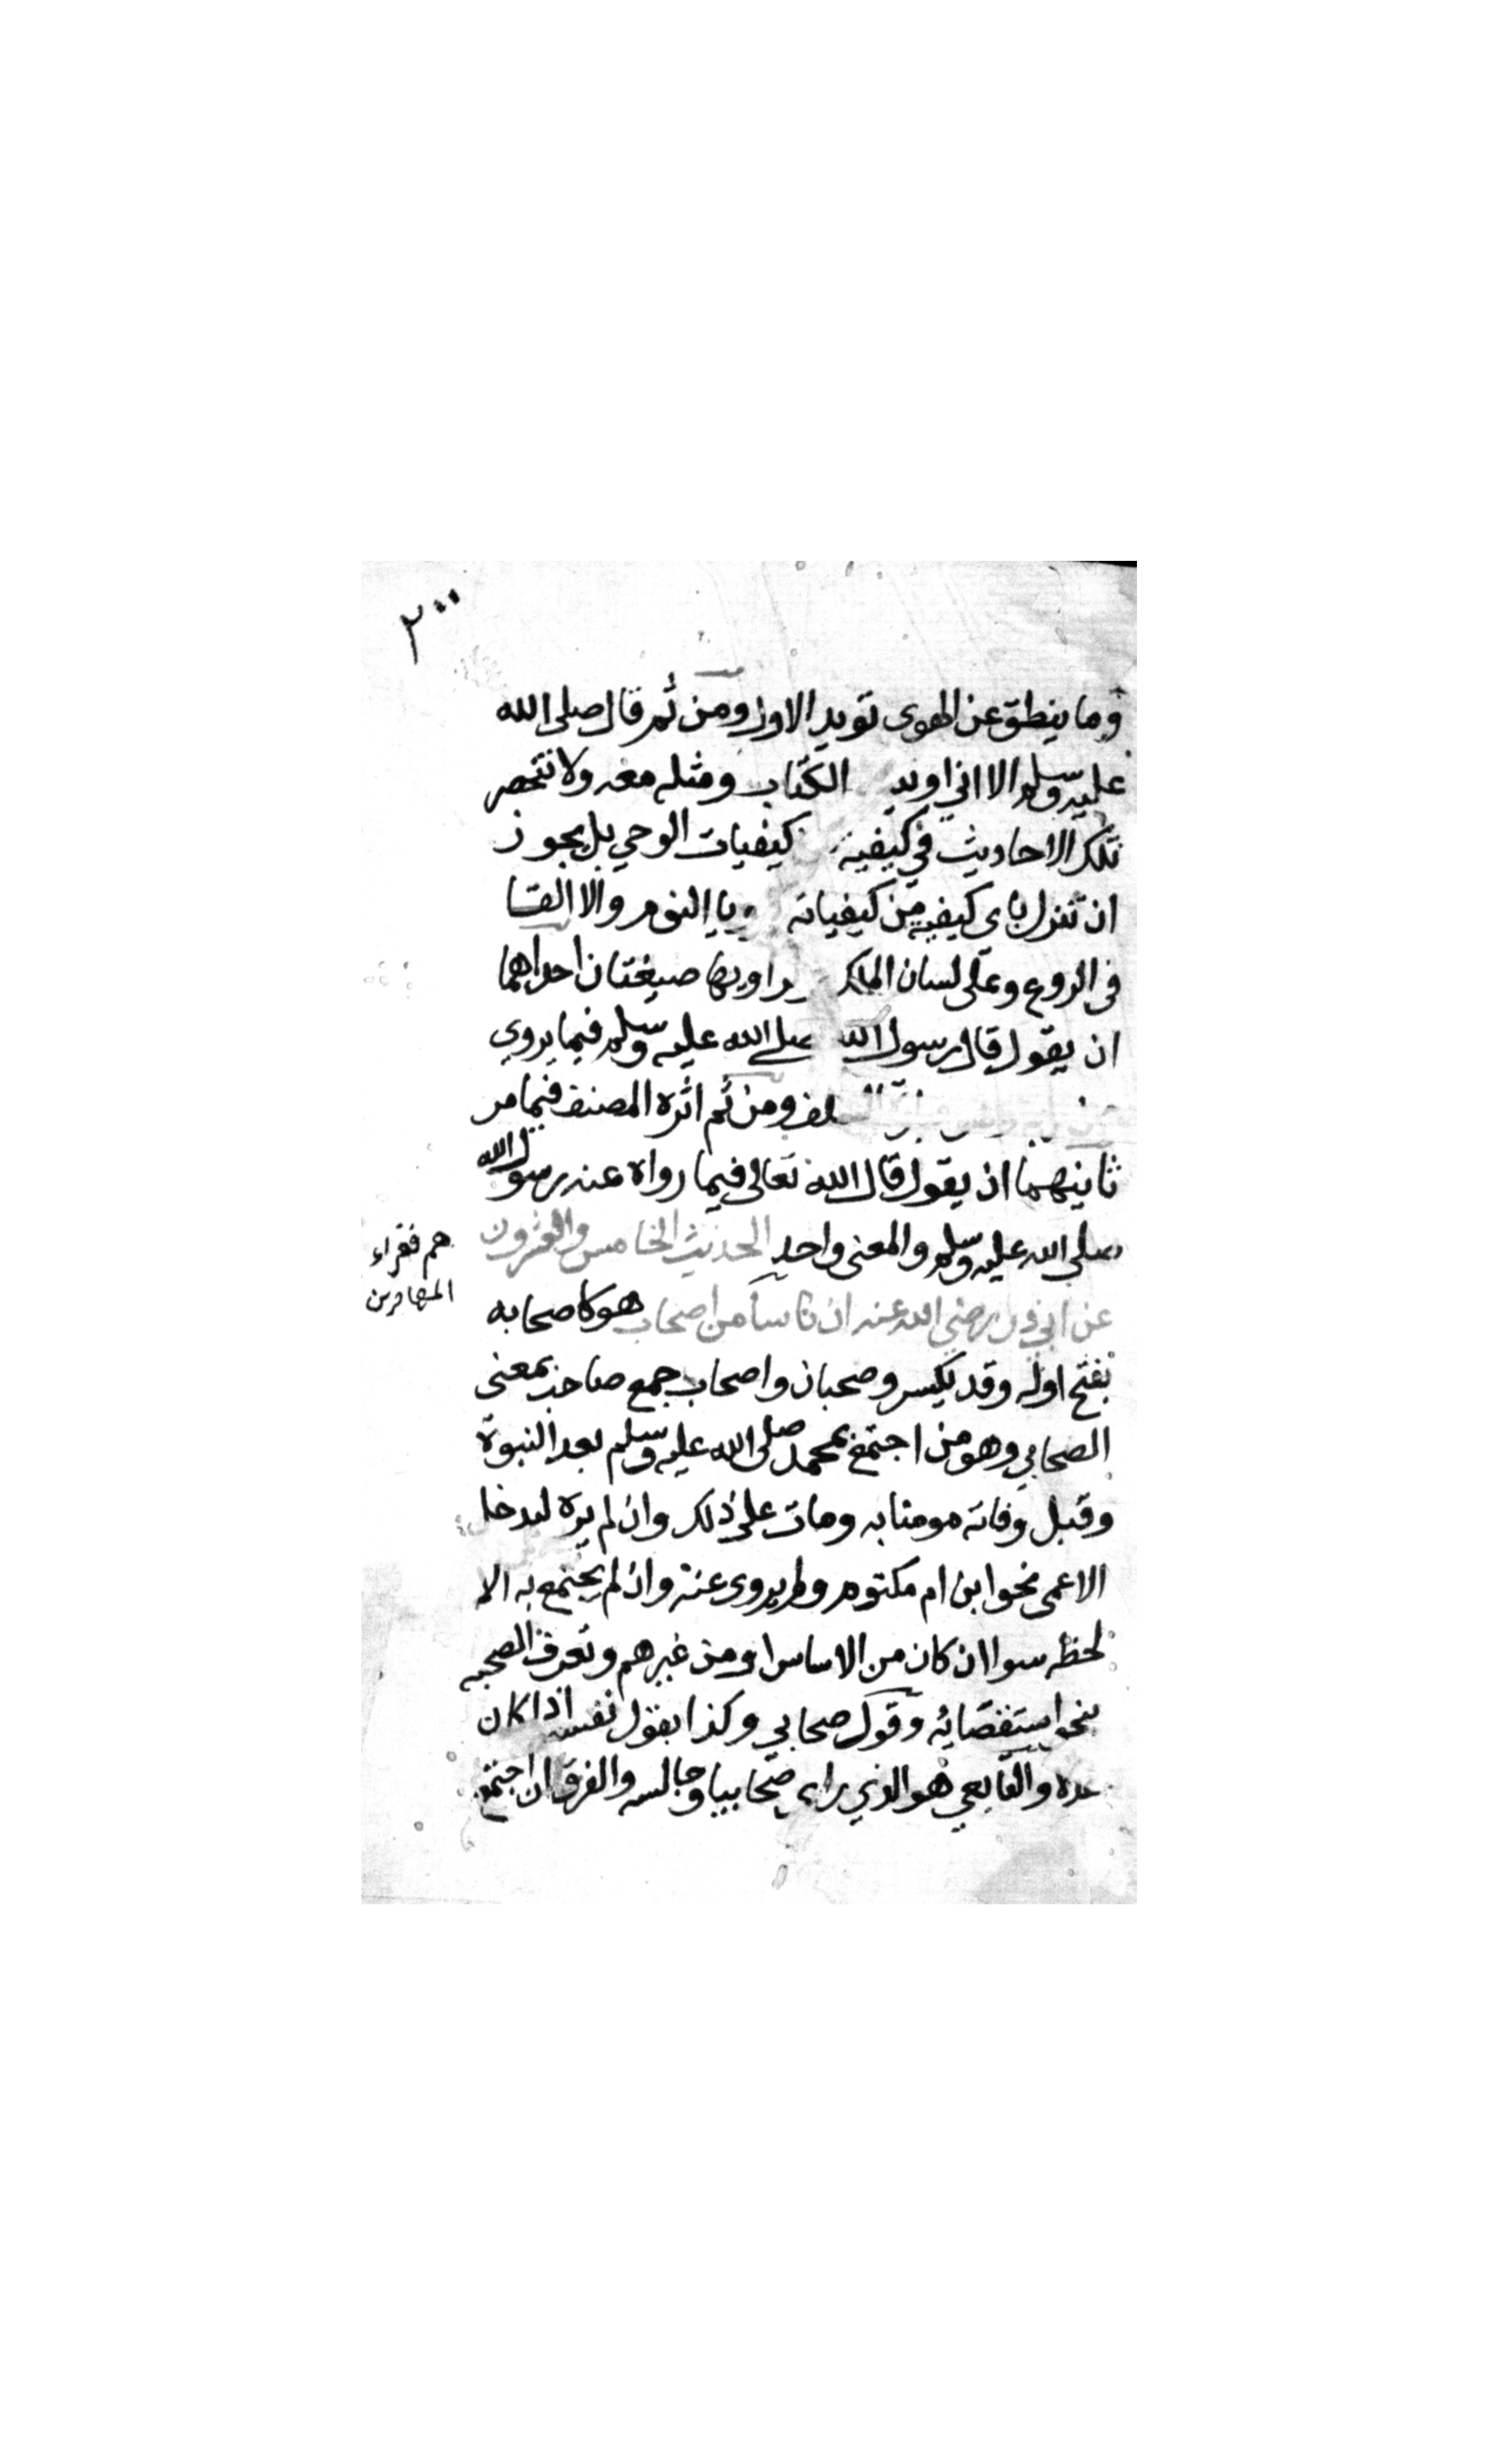 ٢٠٠
وما ينطق عن الهوى تويد الاول ومن ثم قال صلى الله
عليه وسلم الا اني اوتيت الكتاب ومثله معه ولا تنحصر
تلك الاحاديث في كيفية كيفيات الوحي بل يجوز
ان تنزل باي كيفية من كيفياته النوم والا القا
في الروع وعلى لسان الملك ولراويها صيغتان احداهما
ان يقول قال رسول الله صلى الله عليه وسلم فيما يروي
ومن ثم اثره المصنف فيما مر
ثانيهما ان يقول قال الله تعالى فيما رواه عنه رسول الله
صلى الله عليه وسلم والمعنى واحد الحديث الخامس والعشرون
عن ابي ذر رضي الله عنه ان ناسا من اصحاب هو كاصحابه
بفتح اوله وقد يكسر وصحبان واصحاب جمع صاحب بمعنى
الصحابي وهو من اجتمع بمحمد صلى الله عليه وسلم بعد النبوة
وقبل وفاته مومنا به ومات على ذلك وان لم يره ليدخل
الاعمى نحو ابن ام مكتوم ولم يروى عنه وان لم يجتمع به الا
لحظه سوا ان كان من الاساس او من غيرهم وتعرف الصحبه
بنحو استفضائه وقول صحابي وكذا بقول نفسه اذا كان
عده والتابعي هو الذي راى صحابيا وجالسه والفرق ان اجتمع
هم فقراء
المهاجرين